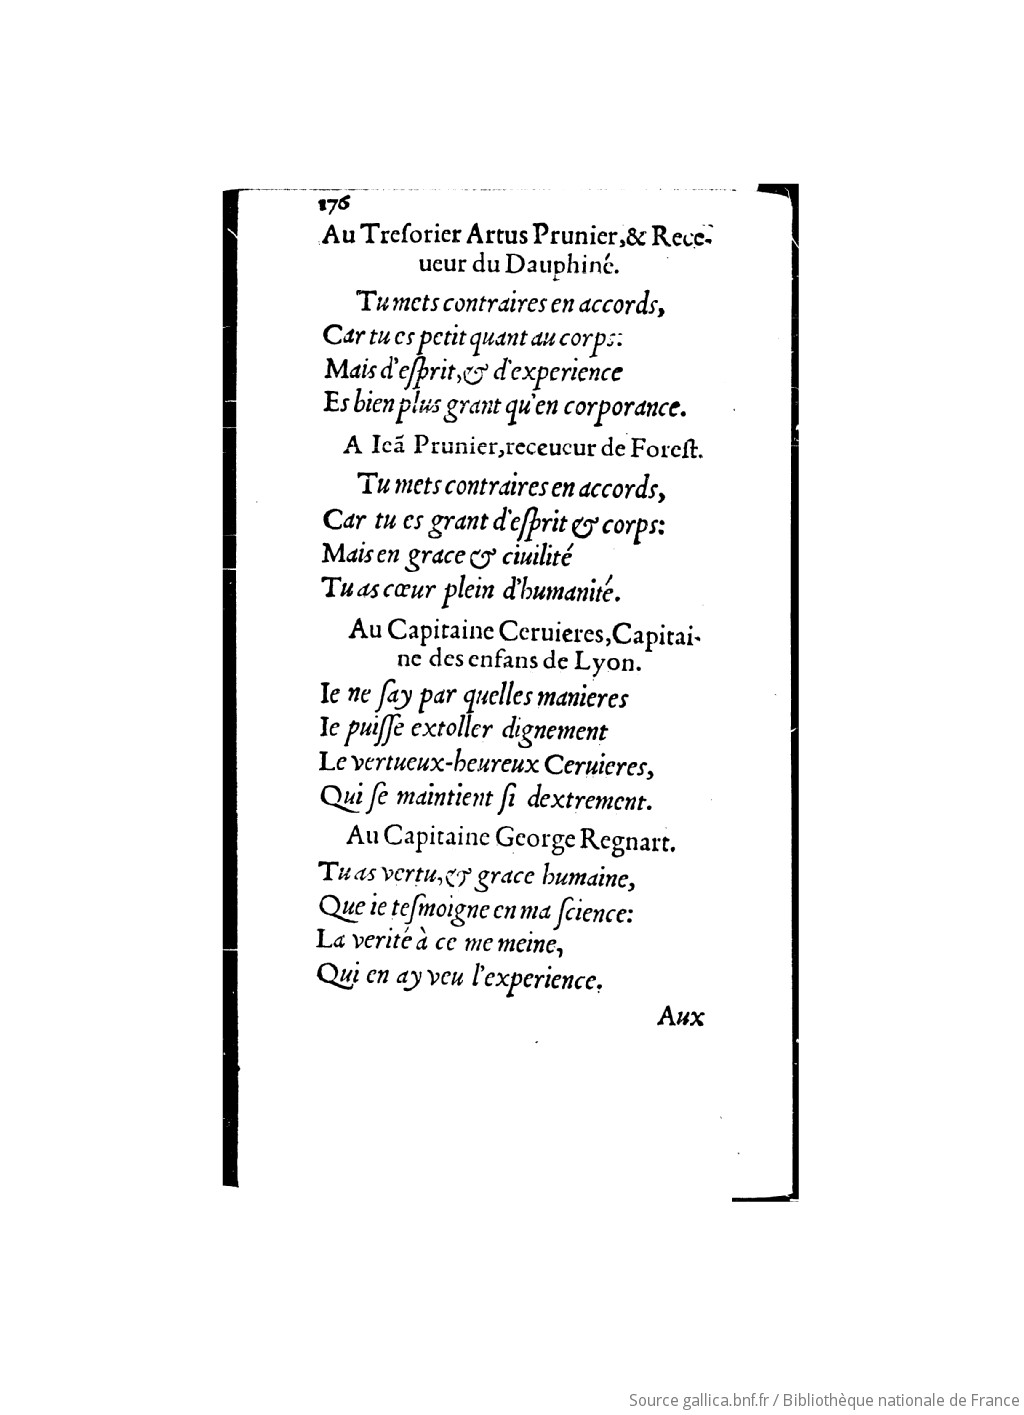 176
Au Treſorier Artus Prunier,& Rece-
ueur du Dauphiné.
Tu mets contraires en accords,
Car tu es petit quant au corps:
Mais d'eſprit,& d'experience
Es bien plus grant qu'en corporance.
A Ieã Prunier,receueur de Foreſt.
Tu mets contraires en accords,
Car tu es grant d'eſprit & corps:
Mais en grace & ciuilité
Tu as cœur plein d'humanité.
Au Capitaine Ceruieres,Capitai-
ne des enfans de Lyon.
Ie ne ſay par quelles manieres
Ie puiſſe extoller dignement
Le vertueux-heureux Ceruieres,
Qui ſe maintient ſi dextrement.
Au Capitaine George Regnart.
Tu as vertu,& grace humaine,
Que ie teſmoigne en ma ſcience:
La verité à ce me meine,
Qui en ay veu l'experience.
Aux
Source gallica.bnf.fr / Bibliothèque nationale de France